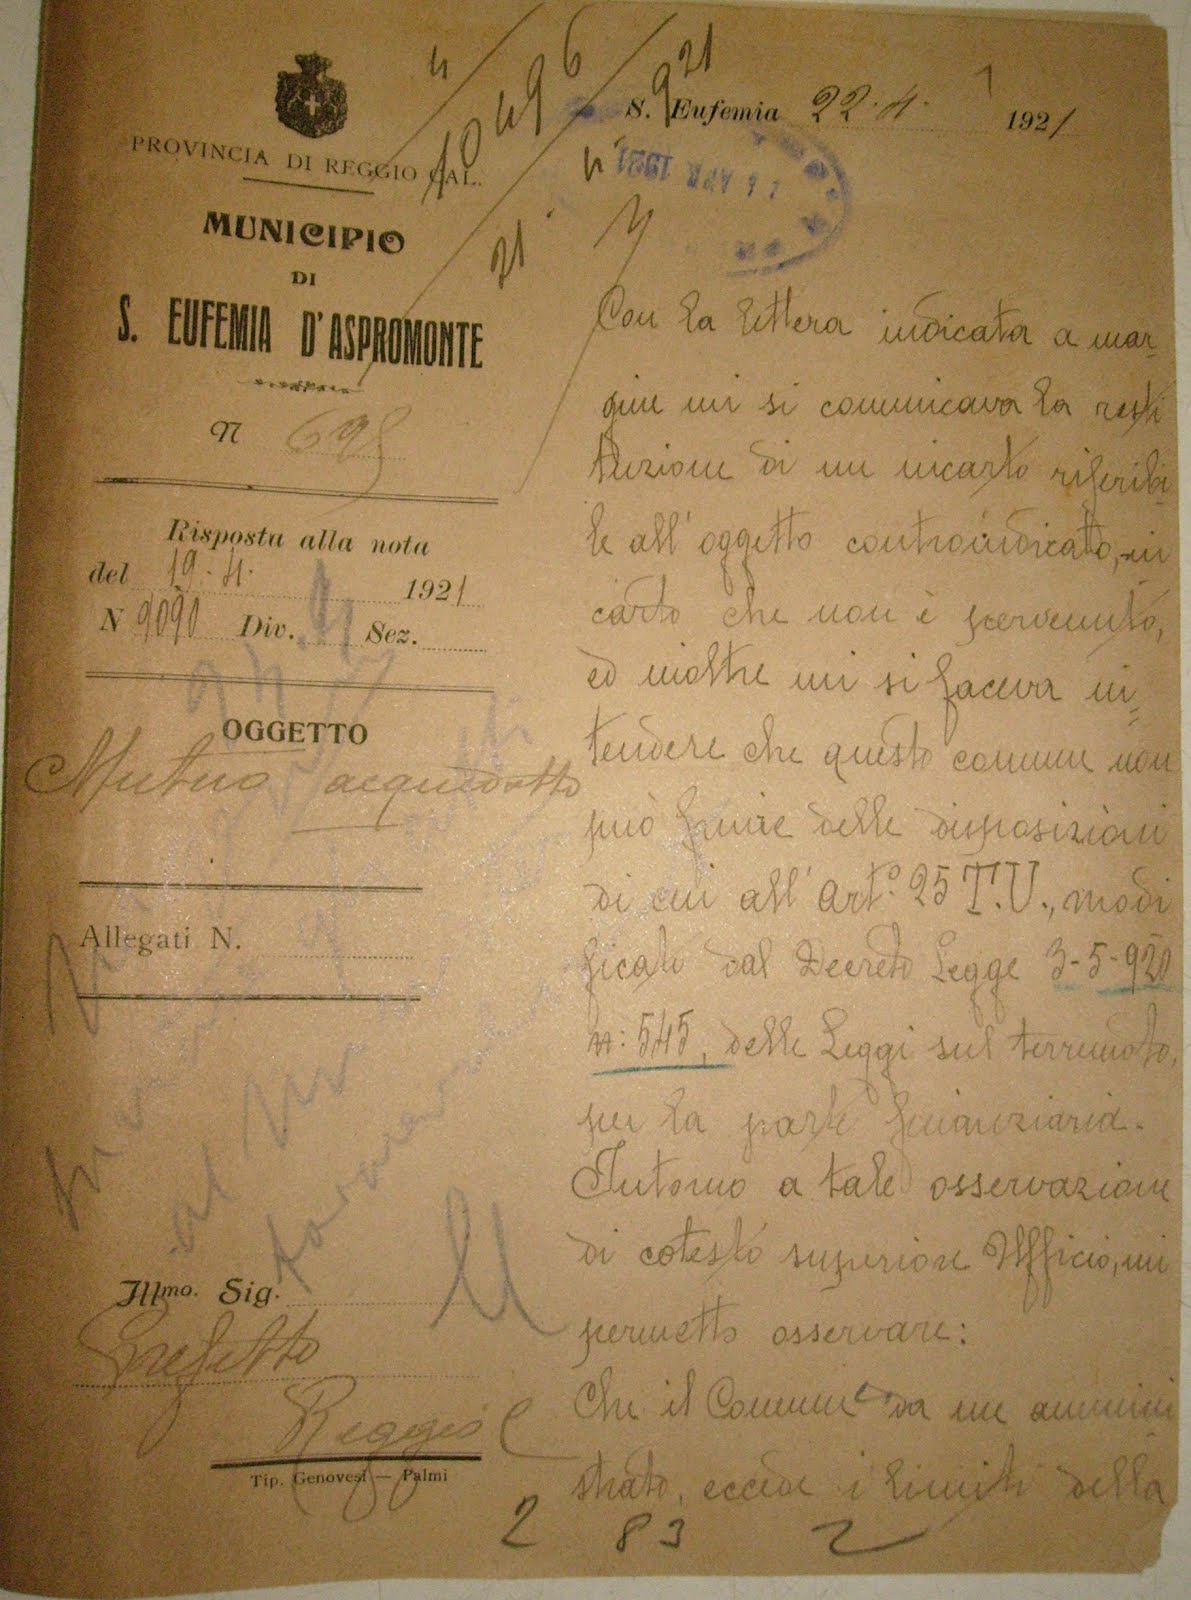 PROVINCIA DI REGGIO CAL.
MUNICIPIO
DI
S. EUFEMIA D'ASPROMONTE
N 695
Risposta alla nota
del 19.4. 1921
N 9090 Div. 4 Sez.
OGGETTO
Mutuo acquedotto
Allegati N.
Illmo. Sig.
Prefetto
Reggio C
Tip. Genovesi — Palmi
S. Eufemia 22.4. 1921
APR 1921
Con la lettera indicata a mar=
gine mi si comunicava la resti
tuzione di un incarto riferibi
le all'oggetto controindicato, in
carto che non è pervenuto,
ed inoltre mi si faceva in=
tendere che questo comune non
può fruire delle disposizioni
di cui all'Art.º 25 T.U., modi
ficato dal Decreto Legge 3-5-920
n: 545, delle Leggi sul terremoto,
per la parte finanziaria.
Intorno a tale osservazione
di cotesto superiore Ufficio, mi
permetto osservare:
Che il Comune da me ammini
strato, eccede i limiti della
2 83 2